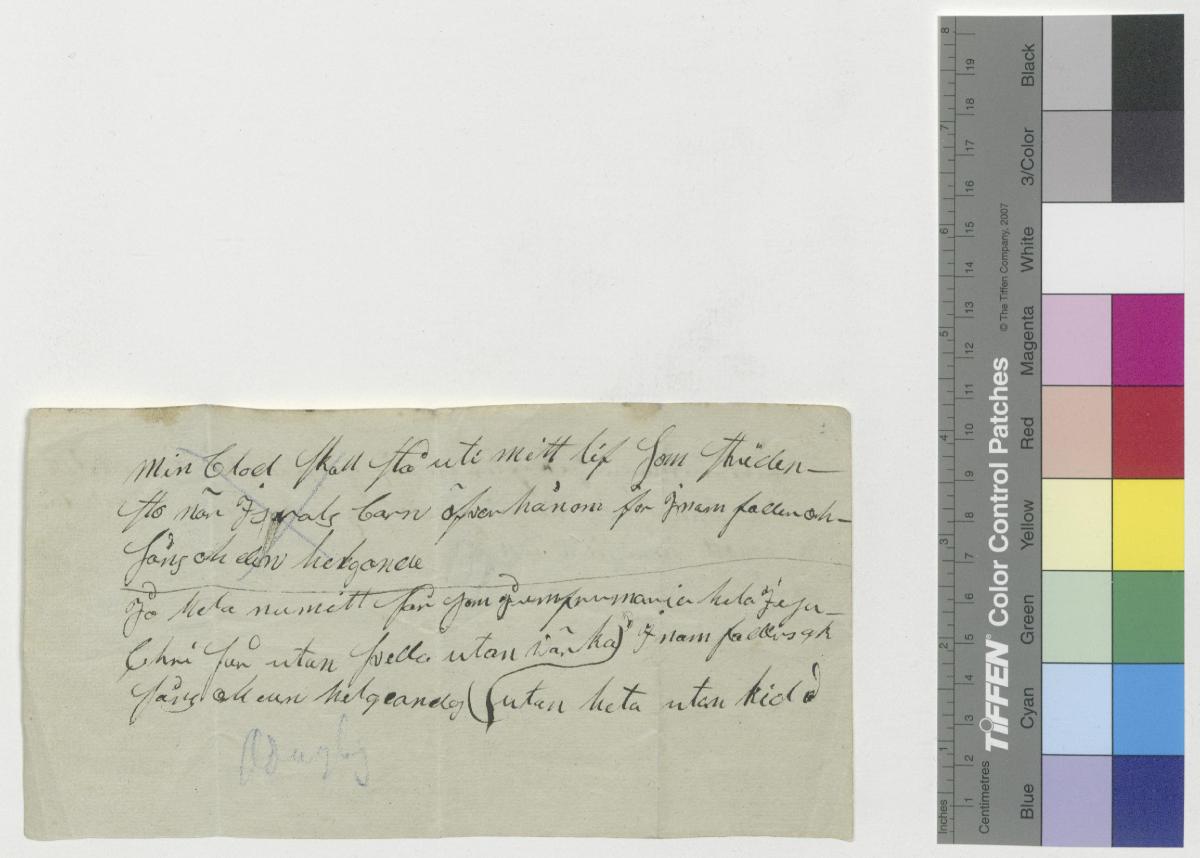 min Blod skall stå uti mitt lif som
når Israels barn öfver hånom för J nam fader och
sons och den helgande
Jo heta nu mitt sår som Jumfru maria heta Jesu
Chri sår utan svella utan värka J nam faders ok
sons ok den helgeandes (utan heta utan kida
Inches
Centimetres
TIFFEN® Color Control Patches
© The Tiffen Company, 2007
1 2 3 4 5 6 7 8
1 2 3 4 5 6 7 8 9 10 11 12 13 14 15 16 17 18 19
Blue
Cyan
Green
Yellow
Red
Magenta
White
3/Color
Black